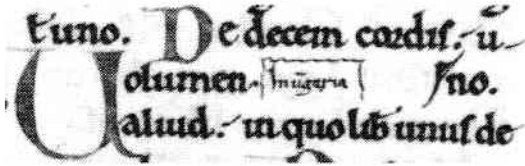 uno. De decem cordiſ. ū
Uolumen no.
aliud. in quo lib̅ unuſ de